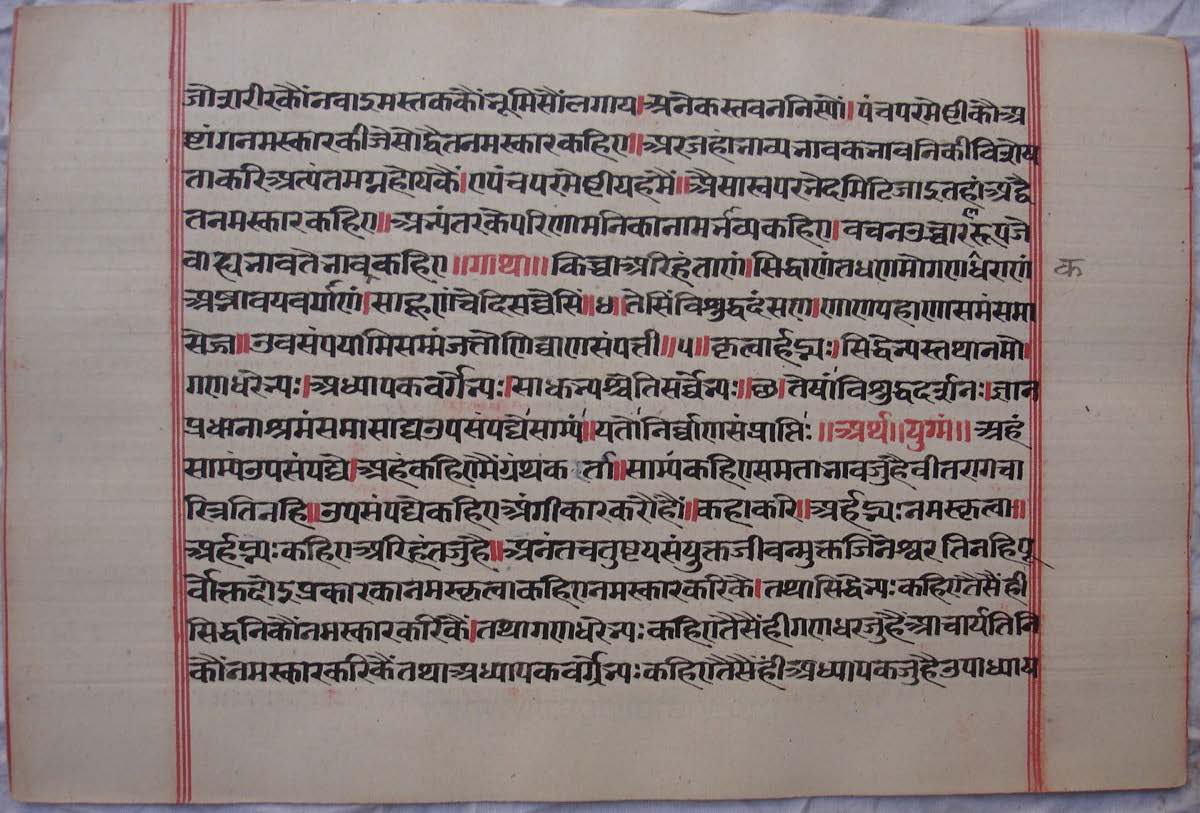 जो शरीरकौं नवाइ मस्तककौं भूमिसौं लगाय। अनेक स्तवननिस्यों। पंचपरमेष्टीकौ अ
ष्टांगनमस्कार कीजै सो द्वैतनमस्कार कहिए॥ अर जहां भाव्यभावकभावनिकी विशेष
ता करि अत्यंत मग्न होयकै। ए पंचपरमेष्टी यह मैं॥ औसा स्वपर भेद मिटि जाइ तहां अद्वै
तनमस्कार कहिए॥ अभ्यंतरके परिणामनिका नाम भाव्य कहिए। वचन उच्चार रूप जे
वाह्य भाव ते भावक कहिए ॥गाथा॥ किच्चा अरिहंताणं। सिद्धाणं तध णमो गणधराणं क
अझावयवर्याणं। साहूणं चेदि सव्वेसिं॥४॥ तेसिं विशुद्धदंसण। णाणपहाणासमं समा
सेज्ज॥ उवसंपयामि सम्मं जत्तो णिव्वाणसंपत्ती॥५॥ कृत्वार्हद्भ्यः। सिद्धेभ्यस्तथा नमो।
गणधरेभ्यः। अध्यापकवर्गेभ्यः। साधुभ्यश्चेति सर्व्वेभ्यः॥छ॥ तेषां विशुद्धदर्शनः। ज्ञान
प्रधानाश्रमं समासाद्य उपसंपद्ये साम्यं॥ यतो निर्व्वाणसंप्राप्तिः ॥अर्थ॥ युग्मं॥ अहं
साम्यं उपसंपद्ये। अहं कहिए मैं ग्रंथकर्ता॥ साम्यं कहिए समताभाव जु है वीतराग चा
रित्र तिनहि॥ उपसंपद्ये कहिए अंगीकार करौ हौं॥ कहा करि॥ अर्हद्भ्यः नमस्कृत्वा॥
अर्हद्भ्यः कहिए अरिहंत जु है॥ अनंतचतुष्टय संयुक्त जीवन्मुक्त जिनेश्वर तिनहि पू
र्वोक्त दोइ प्रकार का नमस्कृत्वा कहिए नमस्कार करिकै। तथा सिद्धेभ्यः कहिए तैसैं ही
सिद्धनिकौं नमस्कार करिकैं। तथा गणधरेभ्यः कहिए तैसैं ही गणधर जु है आचार्य तिनि
कौं नमस्कार करिकैं तथा अध्यापकवर्ग्रेभ्यः कहिए तैसैं हीं अध्यापक जु है उपाध्याय